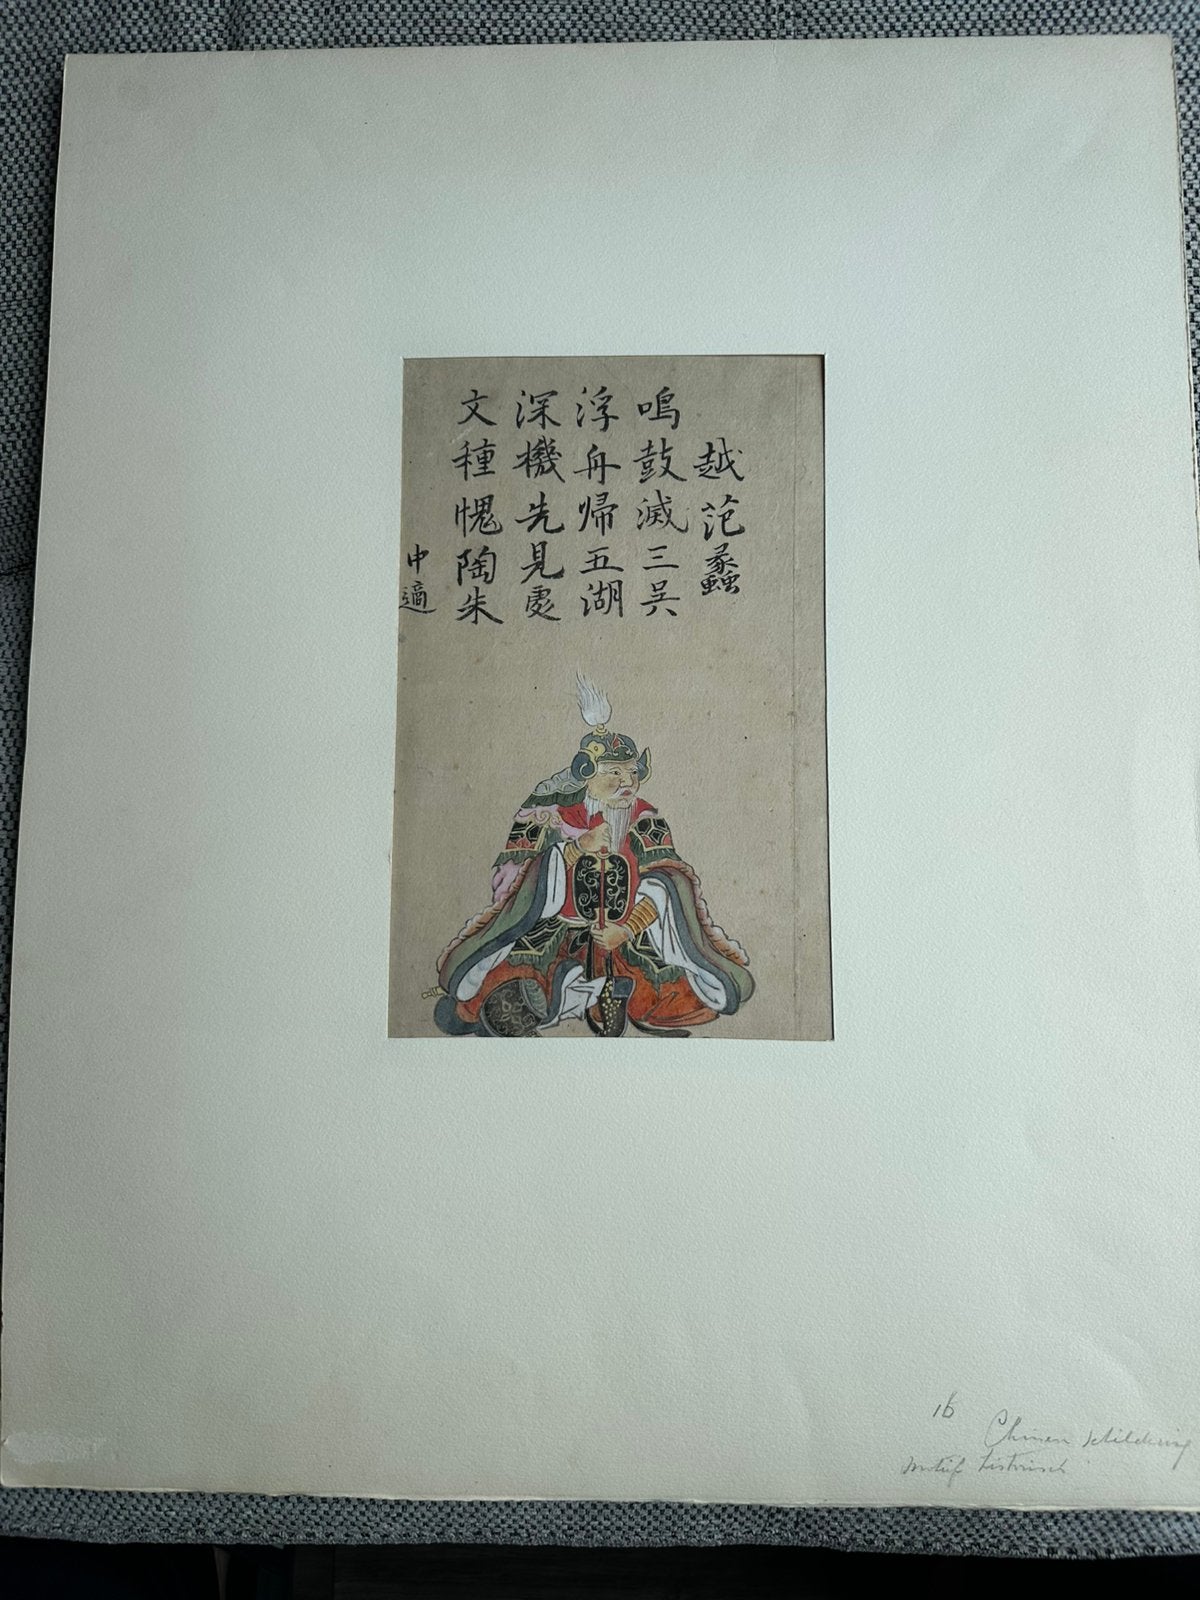 越范蠡
鳴鼓滅三吳
浮舟帰五湖
深機先見處
文種愧陶朱
中適
16
Chineu schildering
motief historisch